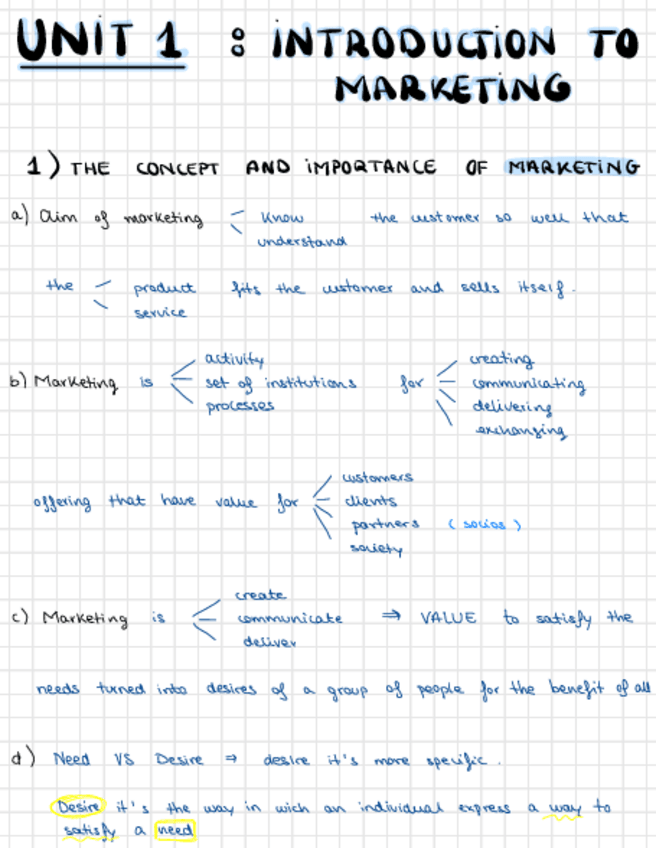 UNIT 1 : INTRODUCTION TO
MARKETING
1) THE CONCEPT AND IMPORTANCE OF MARKETING
a) Aim of marketing know the customer so well that
understand
the product fits the customer and sells itself.
service
activity creating
b) Marketing is set of institutions for communicating
processes delivering
exchanging
customers
offering that have value for clients
partners (socios)
society
create
c) Marketing is communicate ⇒ VALUE to satisfy the
deliver
needs turned into desires of a group of people for the benefit of all
d) Need VS Desire ⇒ desire it's more specific.
Desire it's the way in wich an individual express a way to
satisfy a need